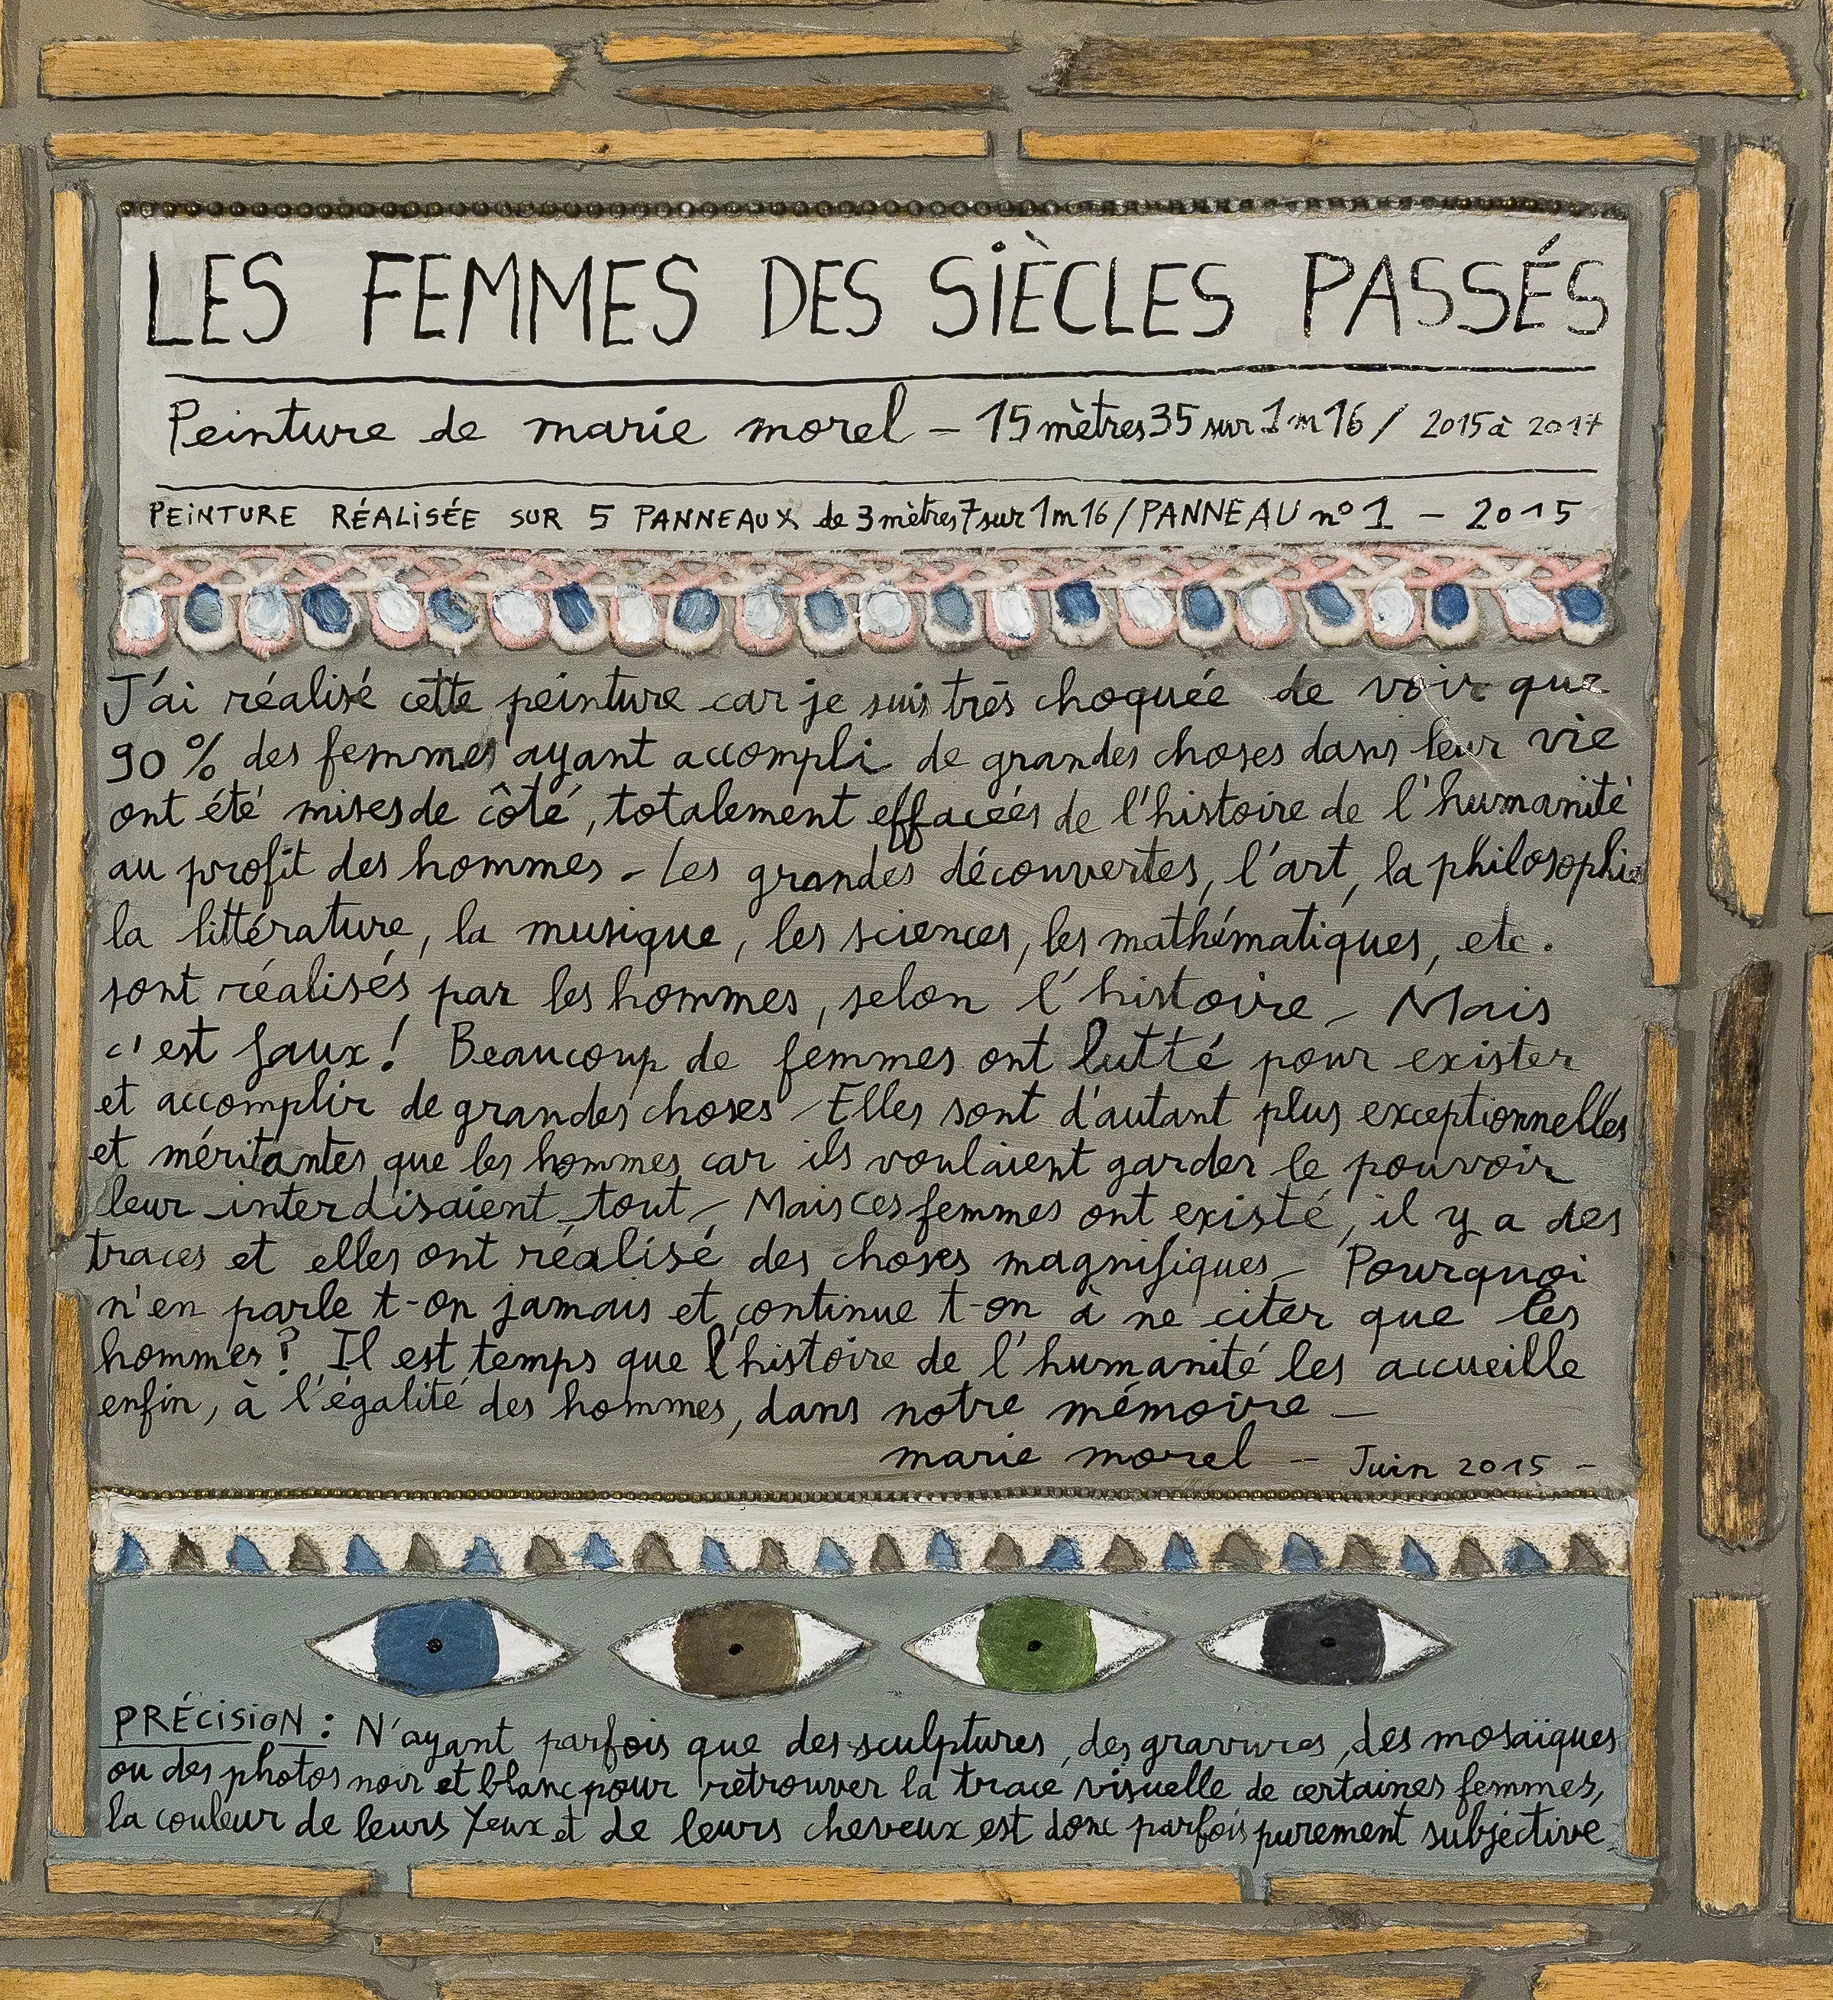 LES FEMMES DES SIÈCLES PASSÉS
Peinture de marie morel – 15 mètres 35 sur 1m16 / 2015 à 2017
PEINTURE RÉALISÉE SUR 5 PANNEAUX de 3 mètres 7 sur 1m16 / PANNEAU n° 1 – 2015
J'ai réalisé cette peinture car je suis très choquée de voir que
90 % des femmes ayant accompli de grandes choses dans leur vie
ont été mises de côté, totalement effacées de l'histoire de l'humanité
au profit des hommes - Les grandes découvertes, l'art, la philosophie
la littérature, la musique, les sciences, les mathématiques, etc.
sont réalisés par les hommes, selon l'histoire - Mais
c'est faux ! Beaucoup de femmes ont lutté pour exister
et accomplir de grandes choses - Elles sont d'autant plus exceptionnelles
et méritantes que les hommes car ils voulaient garder le pouvoir
leur interdisaient tout - Mais ces femmes ont existé, il y a des
traces et elles ont réalisé des choses magnifiques - Pourquoi
n'en parle t-on jamais et continue t-on à ne citer que les
hommes ? Il est temps que l'histoire de l'humanité les accueille
enfin, à l'égalité des hommes, dans notre mémoire -
marie morel - Juin 2015 -
PRÉCISION : N'ayant parfois que des sculptures, des gravures, des mosaïques
ou des photos noir et blanc pour retrouver la trace visuelle de certaines femmes,
la couleur de leurs Yeux et de leurs cheveux est donc parfois purement subjective.